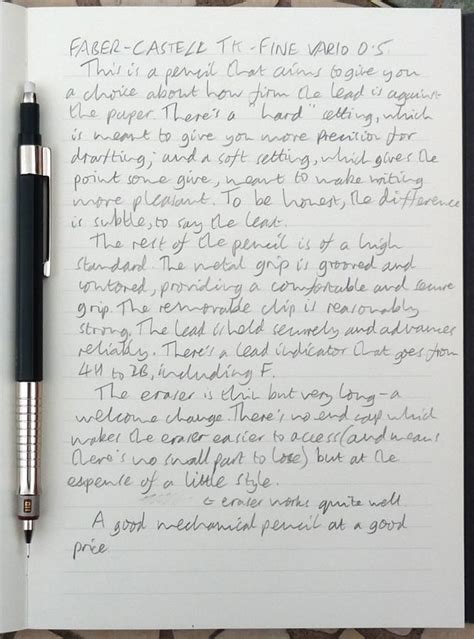 FABER-CASTELL TK-FINE VARIO 0.5
This is a pencil that aims to give you
a choice about how firm the lead is against
the paper. There's a "hard" setting, which
is meant to give you more precision for
drafting, and a soft setting, which gives the
point some give, meant to make writing
more pleasant. To be honest, the difference
is subtle, to say the least.
The rest of the pencil is of a high
standard. The metal grip is grooved and
contored, providing a comfortable and secure
grip. The removable clip is reasonably
strong. The lead is held securely and advances
reliably. There's a lead indicator that goes from
4H to 2B, including F.
The eraser is thin but very long - a
welcome change. There's no end cap which
makes the eraser easier to access (and means
there's no small part to lose) but at the
expense of a little style.
↳ eraser works quite well
A good mechanical pencil at a good
price